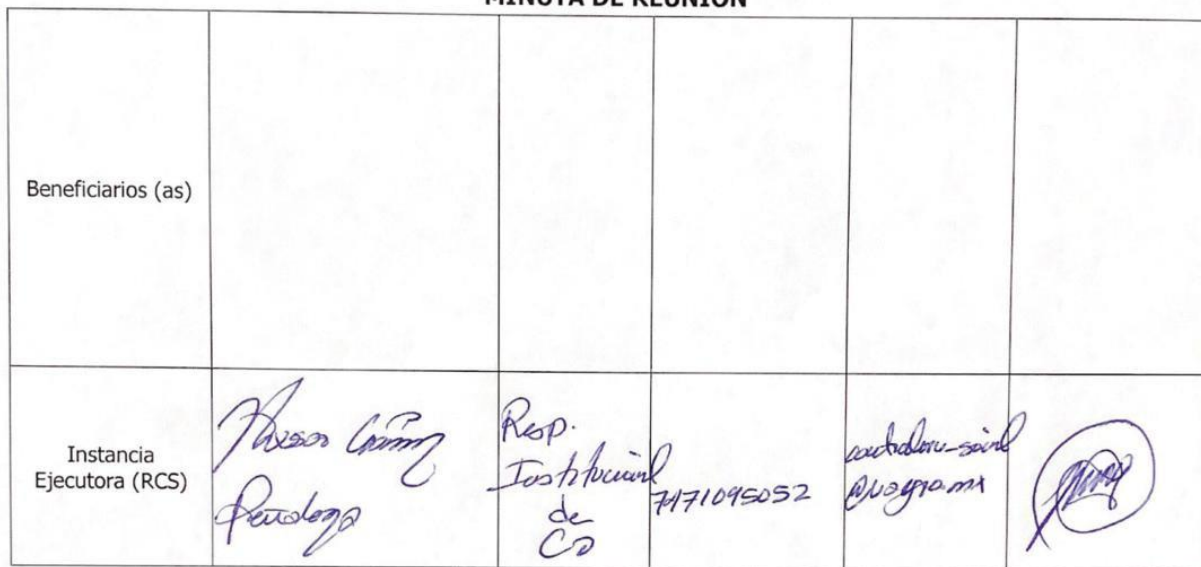 MINUTA DE REUNIÓN
Beneficiarios (as)
Instancia
Ejecutora (RCS)
Resp.
Institucional
de
CS
7471095052
contraloria_social
@uagro.mx